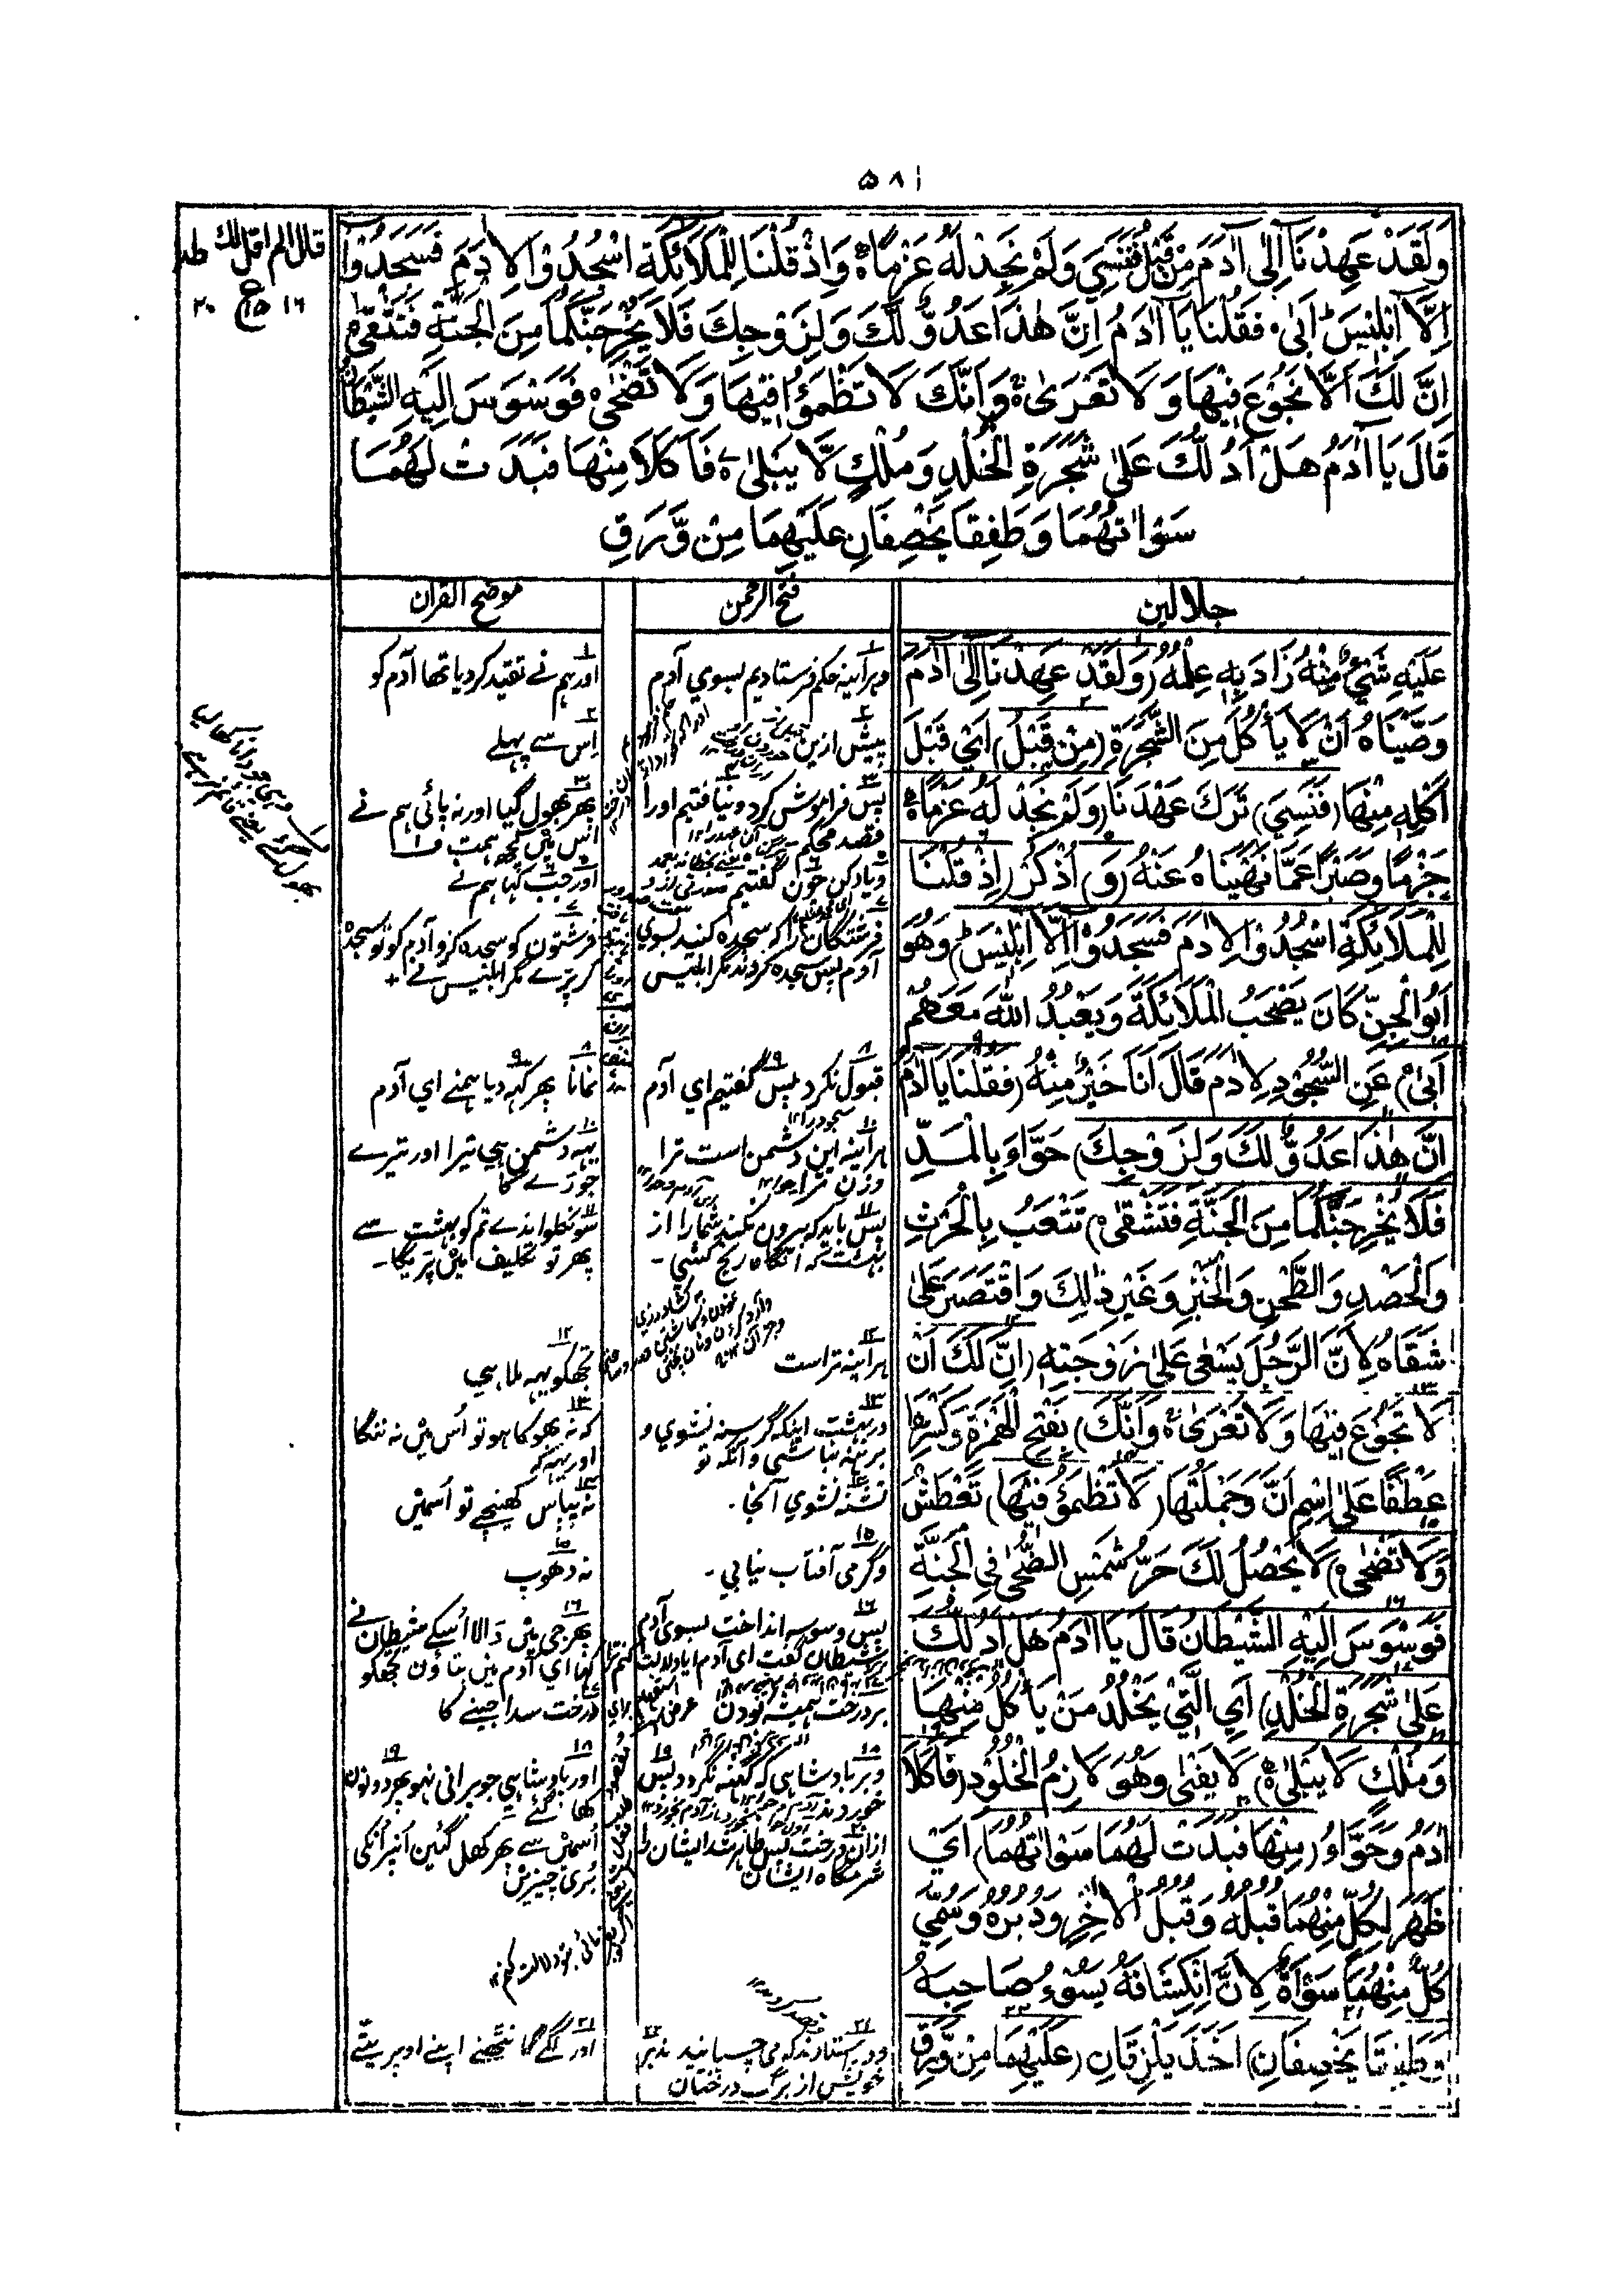 ۵۸۱
قال الم اقل لك طه
۱۶ ع ۱۵ ۲۰
وَلَقَدْ عَهِدْنَآ اِلٰى اٰدَمَ مِنْ قَبْلُ فَنَسِيَ وَلَمْ نَجِدْ لَهُ عَزْمًا وَاِذْ قُلْنَا لِلْمَلَائِكَةِ اسْجُدُوْا لِاٰدَمَ فَسَجَدُوْا
اِلَّا اِبْلِيْسَ اَبٰى فَقُلْنَا يَا اٰدَمُ اِنَّ هٰذَا عَدُوٌّ لَّكَ وَلِزَوْجِكَ فَلَا يُخْرِجَنَّكُمَا مِنَ الْجَنَّةِ فَتَشْقٰى
اِنَّ لَكَ اَلَّا تَجُوْعَ فِيْهَا وَلَا تَعْرٰى وَاَنَّكَ لَا تَظْمَؤُا فِيْهَا وَلَا تَضْحٰى فَوَسْوَسَ اِلَيْهِ الشَّيْطَانُ
قَالَ يَا اٰدَمُ هَلْ اَدُلُّكَ عَلٰى شَجَرَةِ الْخُلْدِ وَمُلْكٍ لَّا يَبْلٰى فَاَكَلَا مِنْهَا فَبَدَتْ لَهُمَا
سَوْاٰتُهُمَا وَطَفِقَا يَخْصِفَانِ عَلَيْهِمَا مِنْ وَّرَقِ
جلالين
عَلَيْهِ شَيْءٌ مِنْهُ زَادَ بِهِ عِلْمُهُ (وَلَقَدْ عَهِدْنَا اِلٰى اٰدَمَ
وَصَّيْنَاهُ اَنْ لَا يَأْكُلَ مِنَ الشَّجَرَةِ (مِنْ قَبْلُ) اَيْ قَبْلَ
اَكْلِهِ مِنْهَا (فَنَسِيَ) تَرَكَ عَهْدَنَا (وَلَمْ نَجِدْ لَهُ عَزْمًا)
جَزْمًا وَصَبْرًا عَمَّا نَهَيْنَاهُ عَنْهُ (وَ) اُذْكُرْ (اِذْ قُلْنَا
لِلْمَلَائِكَةِ اسْجُدُوْا لِاٰدَمَ فَسَجَدُوْا اِلَّا اِبْلِيْسَ) وَهُوَ
اَبُو الْجِنِّ كَانَ يَصْحَبُ الْمَلَائِكَةَ وَيَعْبُدُ اللهَ مَعَهُمْ
اَبٰى) عَنِ السُّجُوْدِ لِاٰدَمَ قَالَ اَنَا خَيْرٌ مِنْهُ (فَقُلْنَا يَا اٰدَمُ
اِنَّ هٰذَا عَدُوٌّ لَّكَ وَلِزَوْجِكَ) حَوَّاءَ بِالْمَدِّ
فَلَا يُخْرِجَنَّكُمَا مِنَ الْجَنَّةِ فَتَشْقٰى) تَتْعَبُ بِالْحَرْثِ
وَالْحَصْدِ وَالطَّحْنِ وَالْخَبْزِ وَغَيْرِ ذٰلِكَ وَاقْتَصَرَ عَلٰى
شَقَاهُ لِاَنَّ الرَّجُلَ يَسْعٰى عَلٰى زَوْجَتِهِ (اِنَّ لَكَ اَنْ
لَا تَجُوْعَ فِيْهَا وَلَا تَعْرٰى وَاَنَّكَ) بِفَتْحِ الْهَمْزَةِ وَكَسْرِهَا
عَطْفًا عَلٰى اِسْمِ اِنَّ وَجُمْلَتُهَا (لَا تَظْمَؤُ فِيْهَا) تَعْطَشُ
وَلَا تَضْحٰى) لَا يَحْصُلُ لَكَ حَرُّ شَمْسِ الضُّحٰى فِي الْجَنَّةِ
فَوَسْوَسَ اِلَيْهِ الشَّيْطَانُ قَالَ يَا اٰدَمُ هَلْ اَدُلُّكَ
عَلٰى شَجَرَةِ الْخُلْدِ) اَيِ الَّتِيْ يَخْلُدُ مَنْ يَأْكُلُ مِنْهَا
وَمُلْكٍ لَا يَبْلٰى) لَا يَفْنٰى وَهُوَ لَازِمُ الْخُلُوْدِ (فَاَكَلَا
اٰدَمُ وَحَوَّاءُ (مِنْهَا فَبَدَتْ لَهُمَا سَوْاٰتُهُمَا) اَيْ
ظَهَرَ لِكُلٍّ مِنْهُمَا قُبُلُهُ وَقُبُلُ الْاٰخَرِ وَدُبُرُهُ وَسُمِّيَ
كُلٌّ مِنْهُمَا سَوْاَةً لِاَنَّ اِنْكِشَافَهُ يَسُوْءُ صَاحِبَهُ
وَطَفِقَا يَخْصِفَانِ) اَخَذَ يَلْزِقَانِ (عَلَيْهِمَا مِنْ وَّرَقِ
فتح الرحمن
وہر آینہ حکم فرستادیم بسوي آدم
پیش ازین
پس فراموش کرد و نیافتیم اورا
قصد محکم
ویاد کن چون گفتیم
فرشتگان را کہ سجدہ کنید بسوي
آدم پس سجدہ کردند مگر ابلیس
قبول نکرد پس گفتیم اي آدم
ہر آینہ این دشمن است ترا
وزن ترا
پس باید کہ بیرون نکند شما را از
بہشت کہ آنگاہ رنج کشي -
ہر آینہ تراست
در بہشت اینکہ گرسنہ نشوي و
برہنہ نباشي و آنکہ تو
تشنہ نشوي آنجا .
وگرمي آفتاب نیابي .
پس وسوسہ انداخت بسوي آدم
شیطان گفت اي آدم آیا دلالت کنم ترا
بر درخت ہمیشہ بودن
وبر بادشاہي کہ کہنہ نگردد پس
خوردند
ازان درخت پس ظاہر شد ایشان را
شرمگاہ ایشان
ودر ایستادند کہ مي چسپانیدند بر
خویش از برگ درختان
موضح القران
اور ہم نے تقید کردیا تھا آدم کو
اِس سے پہلے
پھر بھول گیا اور نہ پائي ہم نے
اُس میں کچھ ہمت ف۱
اور جب کہا ہم نے
فرشتون کو سجدہ کرو آدم کو تو سجدہ
کر پڑے مگر ابلیس نے +
نمانا پھر کہہ دیا ہمنے اي آدم
یہہ دشمن ہي تیرا اور تیرے
جوڑے کا
سو نکلوا ندے تم کو بہشت سے
پھر تو تکلیف میں پڑیگا -
تجھکو یہہ ملا ہي
کہ نہ بھوکا ہو تو اُس میں نہ ننگا
اور یہہ کہ
نہ پیاس کھینچے تو اُسمیں
نہ دھوپ
پھر جي میں ڈالا اُسکے شیطان نے
کہا اي آدم میں بتاؤن تجھکو
درخت سدا جینے کا
اور بادشاہي جو پراني نہو پھر دونون
کھا گئے
اُسمیں سے پھر کھل گئین اُنپر اُنکي
بُري چیزیں
اور لگے گانٹھنے اپنے اوپر پتّے